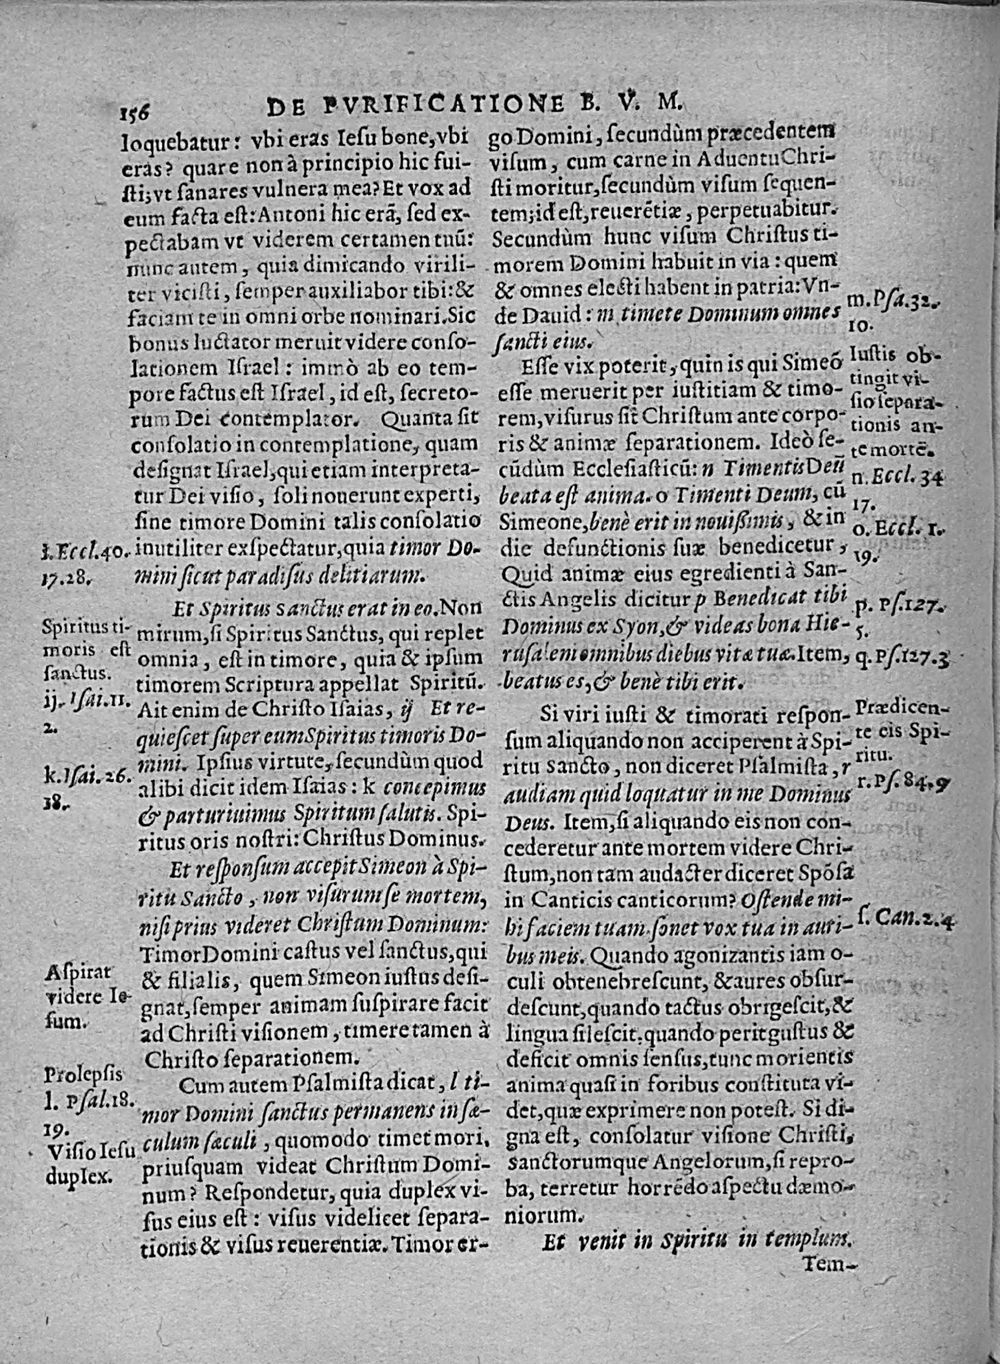 156 DE PVRIFICATIONE B. V. M.
loquebatur: vbi eras Iesu bone, vbi
eras? quare non à principio hic fui-
sti; vt sanares vulnera mea? Et vox ad
eum facta est: Antoni hic erã, sed ex-
pectabam vt viderem certamen tuũ:
nunc autem, quia dimicando virili-
ter vicisti, semper auxiliabor tibi: &
faciam te in omni orbe nominari. Sic
bonus luctator meruit videre conso-
lationem Israel: immò ab eo tem-
pore factus est Israel, id est, secreto-
rum Dei contemplator. Quanta sit
consolatio in contemplatione, quam
designat Israel, qui etiam interpreta-
tur Dei visio, soli nouerunt experti,
sine timore Domini talis consolatio
inutiliter exspectatur, quia timor Do-
mini sicut paradisus delitiarum.
Et Spiritus Sanctus erat in eo. Non
mirum, si Spiritus Sanctus, qui replet
omnia, est in timore, quia & ipsum
timorem Scriptura appellat Spiritũ.
Ait enim de Christo Isaias, ij Et re-
quiescet super eum Spiritus timoris Do-
mini. Ipsius virtute, secundùm quod
alibi dicit idem Isaias: k concepimus
& parturiuimus Spiritum salutis. Spi-
ritus oris nostri: Christus Dominus.
Et responsum accepit Simeon à Spi-
ritu Sancto, non visurum se mortem,
nisi prius videret Christum Dominum:
Timor Domini castus vel sanctus, qui
& filialis, quem Simeon iustus desi-
gnat, semper animam suspirare facit
ad Christi visionem, timere tamen à
Christo separationem.
Cum autem Psalmista dicat, l ti-
mor Domini sanctus permanens in sæ-
culum sæculi, quomodo timet mori,
priusquam videat Christum Domi-
num? Respondetur, quia duplex vi-
sus eius est: visus videlicet separa-
tionis & visus reuerentiæ. Timor er-
i. Eccl. 40.
17. 28.
Spiritus ti-
moris est
sanctus.
ij. Isai. 11.
2.
k. Isai. 26.
18.
Aspirat
videre Ie-
sum.
Prolepsis
l. Psal. 18.
19.
Visio Iesu
duplex.
go Domini, secundùm præcedentem
visum, cum carne in Aduentu Chri-
sti moritur, secundùm visum sequen-
tem; id est, reuerẽtiæ, perpetuabitur.
Secundùm hunc visum Christus ti-
morem Domini habuit in via: quem
& omnes electi habent in patria: Vn-
de Dauid: m timete Dominum omnes
sancti eius.
Esse vix poterit, quin is qui Simeõ
esse meruerit per iustitiam & timo-
rem, visurus sit Christum ante corpo-
ris & animæ separationem. Ideò se-
cũdùm Ecclesiasticũ: n Timentis Deũ
beata est anima. o Timenti Deum, cũ
Simeone, benè erit in nouissimis, & in
die defunctionis suæ benedicetur,
Quid animæ eius egredienti à San-
ctis Angelis dicitur p Benedicat tibi
Dominus ex Syon, & videas bona Hie-
rusalem omnibus diebus vitæ tuæ. Item,
beatus es, & benè tibi erit.
Si viri iusti & timorati respon-
sum aliquando non acciperent à Spi-
ritu Sancto, non diceret Psalmista, r
audiam quid loquatur in me Dominus
Deus. Item, si aliquando eis non con-
cederetur ante mortem videre Chri-
stum, non tam audacter diceret Spõsa
in Canticis canticorum? Ostende mi-
hi faciem tuam. sonet vox tua in auri-
bus meis. Quando agonizantis iam o-
culi obtenebrescunt, & aures obsur-
descunt, quando tactus obrigescit, &
lingua silescit, quando perit gustus &
deficit omnis sensus, tunc morientis
anima quasi in foribus constituta vi-
det, quæ exprimere non potest. Si di-
gna est, consolatur visione Christi,
Sanctorumque Angelorum, si repro-
ba, terretur horrẽdo aspectu dæmo-
niorum.
Et venit in Spiritu in templum.
Tem-
m. Psa. 32.
10.
Iustis ob-
tingit vi-
sio separa-
tionis an-
te mortẽ.
n. Eccl. 34
17.
o. Eccl. 1.
19.
p. Ps. 127.
5.
q. Ps. 127. 3
Prædicen-
te eis Spi-
ritu.
r. Ps. 84. 9
s. Can. 2. 4